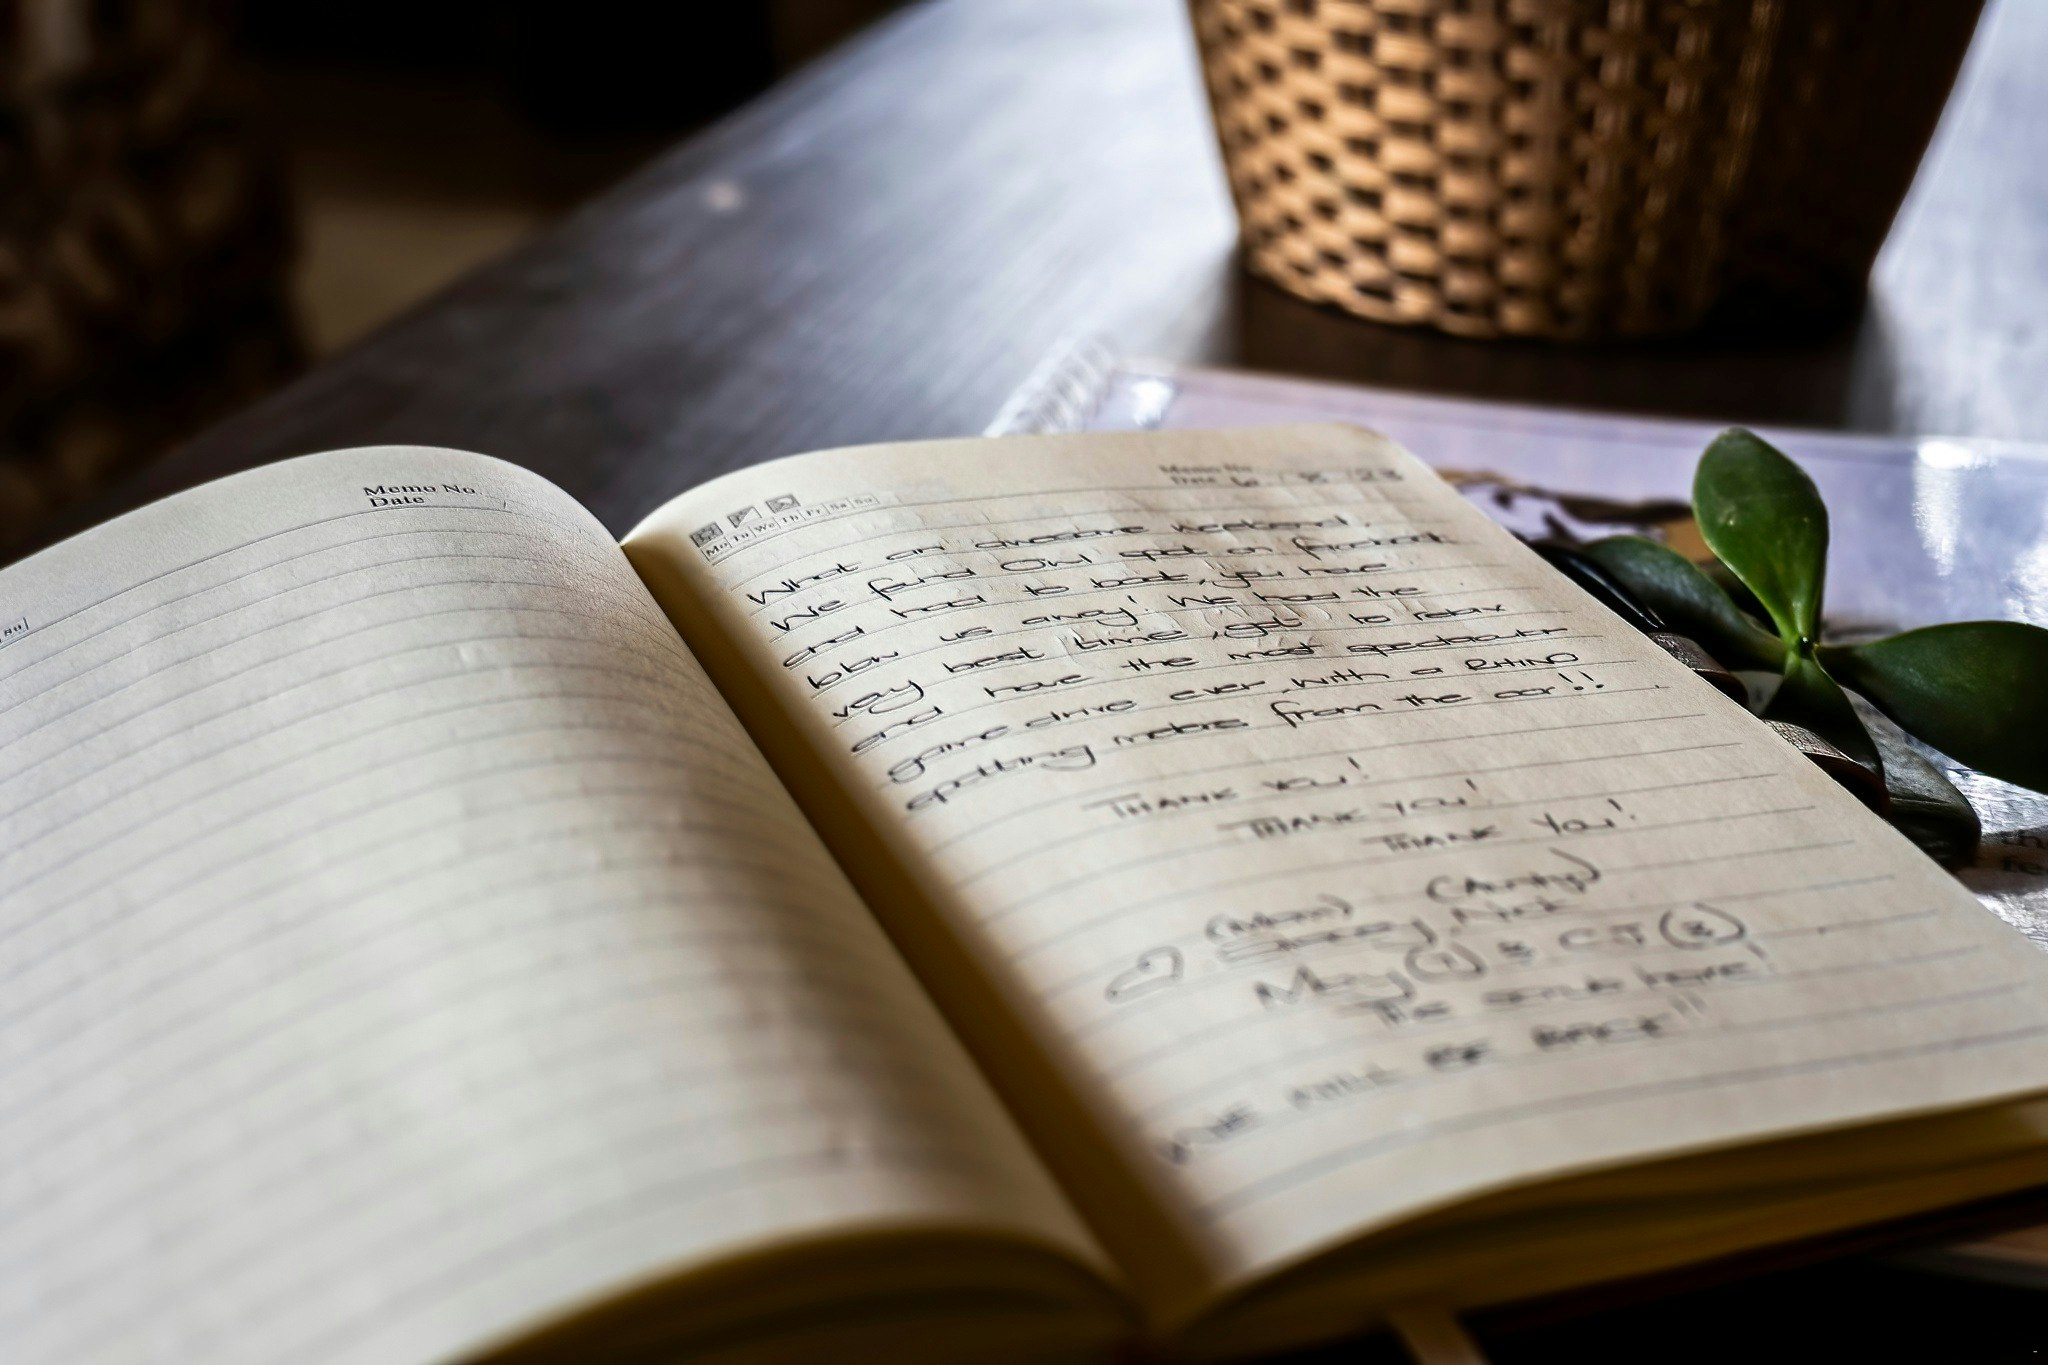 Su
Memo No.
Date
Memo No.
Date 6 / 8 / 23
Mo Tu We Th Fr Sa Su
What an awesome weekend.
We found Owl spot on facebook
and had to book, you have
blow us away! We had the
very best time, got to relax
and have the most spectacular
game drive ever, with a RHINO
spotting metres from the car!!
THANK YOU!
THANK YOU!
THANK YOU!
(Mom)
Nick
(1) & CJ (8)
The home!
WE WILL BE BACK!!